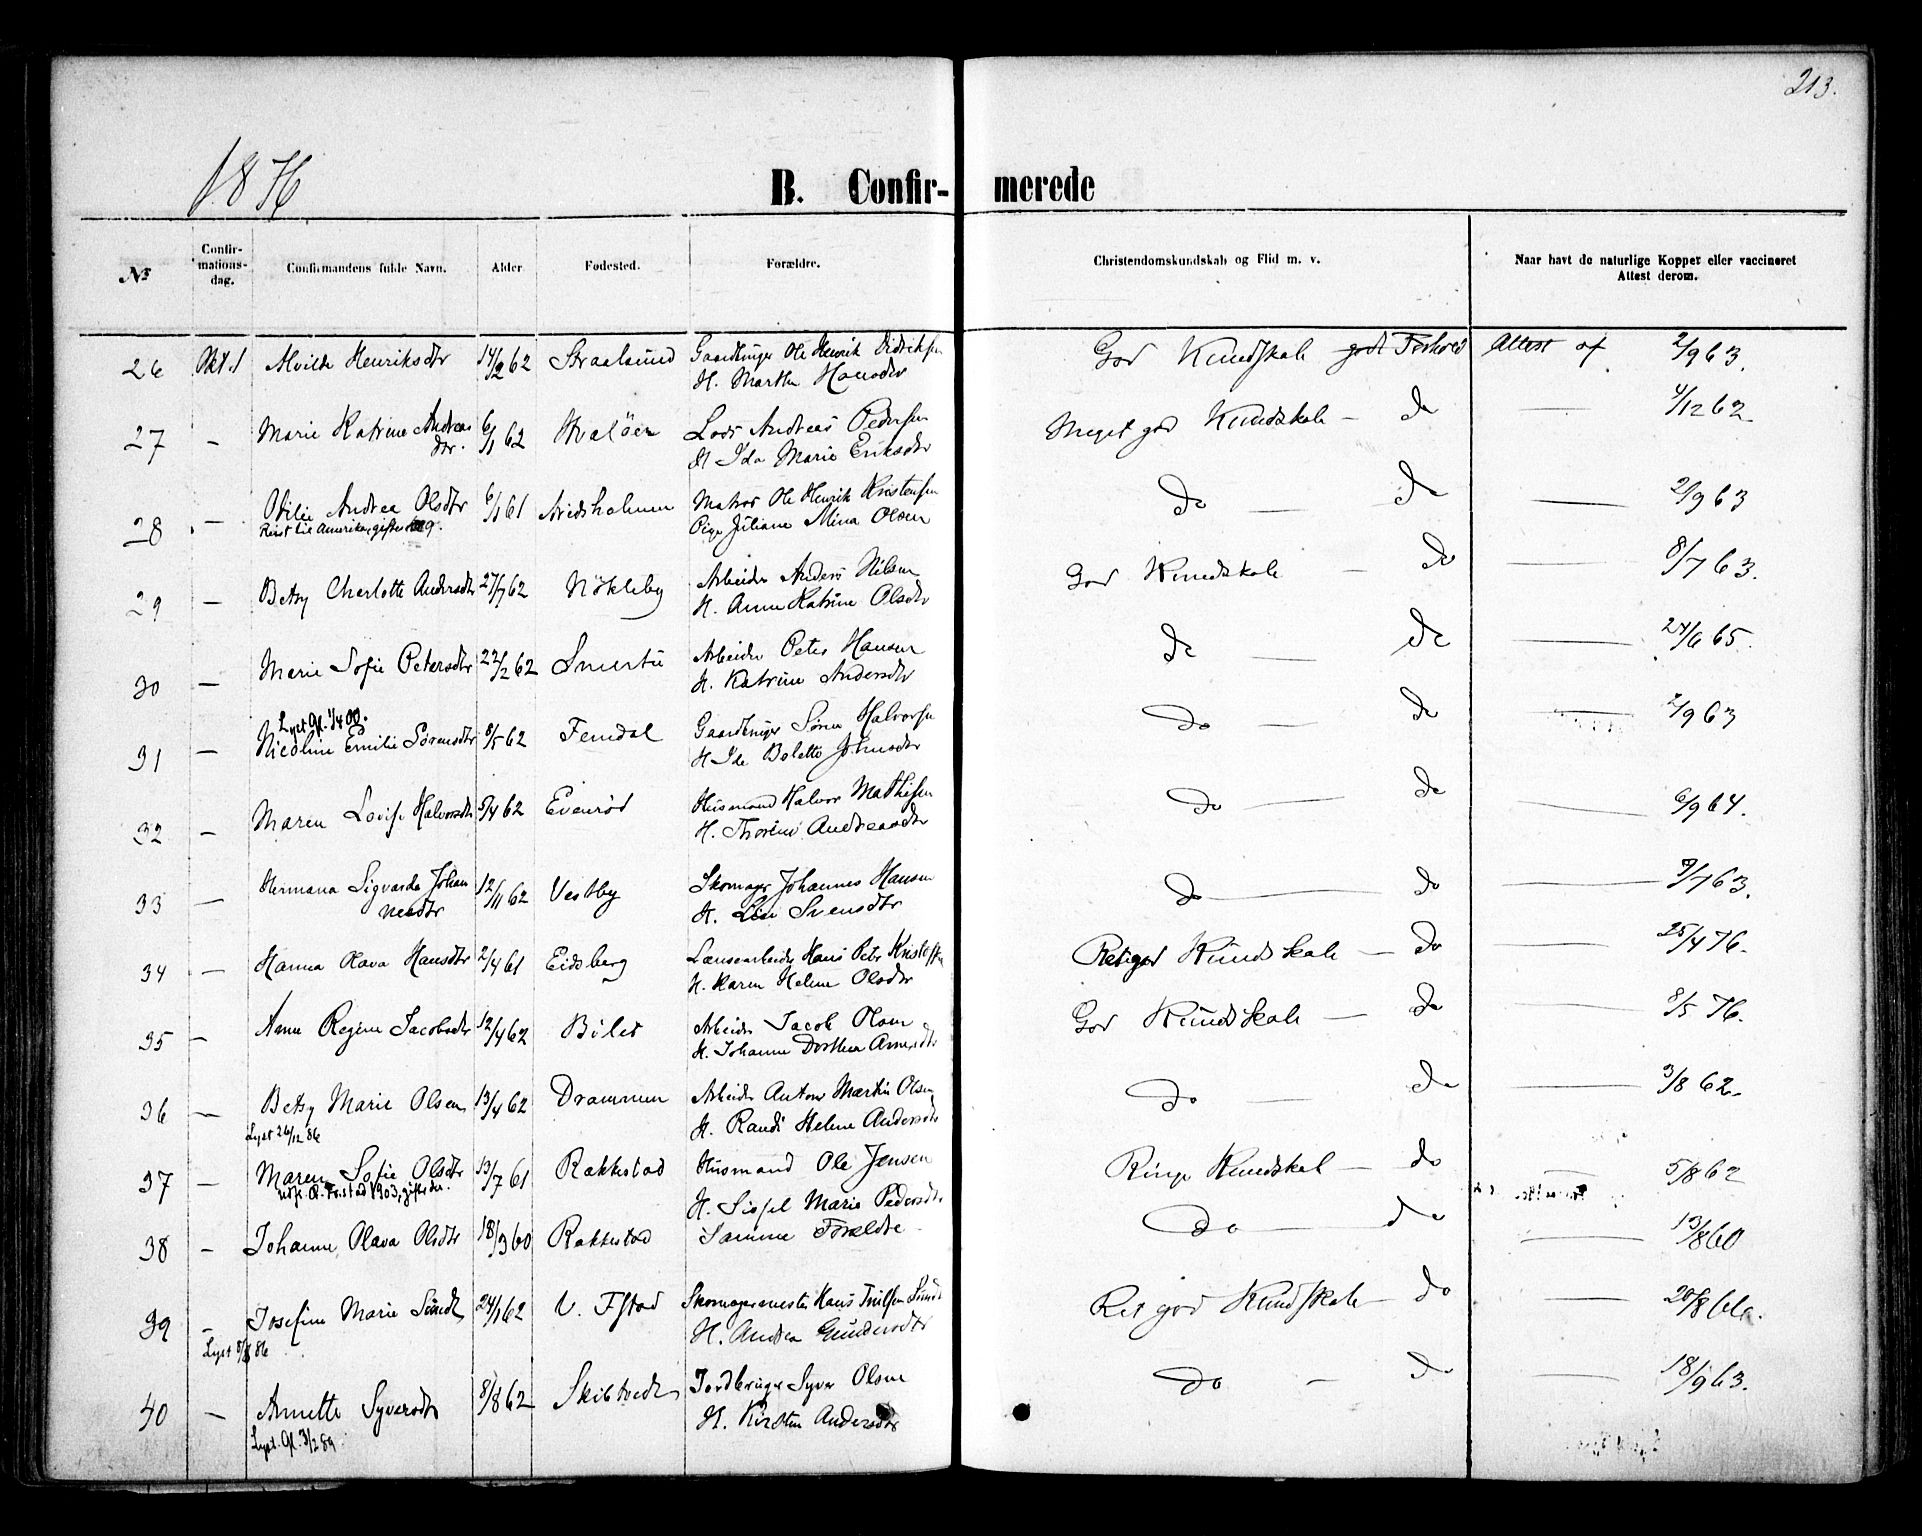 213.
1876
B. Confir- merede
№
Confir-
mations-
dag.
Confirmandens fulde Navn.
Alder
Fødested.
Forældre.
Christendomskundskab og Flid m. v.
Naar havt de naturlige Kopper eller vaccineret
Attest derom.
26 Okt. 1 Alvilde Henriksdtr 14/2 62 Straalsund Gaardbruger Ole Henrik Didriksen God Kundskab godt Forhold Attest af 2/9 63.
H. Marthe Hansdtr
27 — Marie Katrine Andreas 6/1 62 Hvaløer Lods Andreas Pedersen Meget god Kundskab — do — 4/12 62
dtr. H. Ida Marie Eriksdtr
28 — Otilie Andrea Olsdtr 6/1 61 Matros Ole Henrik Kristensen do — do — 2/9 63
Reist til Amerika, gifter seg. Pige Juliane Mina Olsen
29 — Betsy Charlotte Andersdtr 27/7 62 Nökleby Arbeider Anders Nilsen God Kundskab — do 8/7 63.
H. Anne Katrine Olsdtr
30 — Marie Sofie Petersdtr 22/2 62 Smertu Arbeider Peter Hansen do — do — 24/6 65.
H. Katrine Andersdtr
Lyst Gl. 1/4 00.
31 — Nicoline Emilie Sörensdtr 8/5 62 Femdal Gaardbruger Sören Halvorsen do — do 2/9 63
H. Ida Bolette Johnsdtr
32 — Maren Lovise Halvorsdtr 5/4 62 Evenröd Husmand Halvor Mathisen do — do — 6/9 64.
H. Thorine Andreasdtr
33 — Hermana Sigvarda Johan 12/11 62 Vestby Skomager Johannes Hansen do — do — 9/7 63.
nesdtr H. Lise Svensdtr
34 — Hanna Olava Hansdtr 2/4 61 Eidsberg Lænsearbeider Hans Peter Kristoffersen Ret god Kundskab — do — 25/4 76.
H. Karen Helene Olsdtr
35 — Anne Regine Jacobsdtr 12/4 62 Arbeider Jacob Olsen God Kundskab — do — 8/5 76.
H. Johanne Dorthea
36 — Betsy Marie Olsen 13/4 62 Drammen Arbeider Anton Martin Olsen do — do — 3/8 62.
Lyst 26/12 86 H. Randi Helene Andersdtr
37 — Maren Sofie Olsdtr 13/7 61 Rakkestad Husmand Ole Jensen Ringe Kundskab — do — 5/8 62
1903, gifter der. H. Sissel Marie Pedersdtr
38 — Johanne Olava Olsdtr 18/3 60 Rakkestad Samme Forældre do — do — 13/8 60
39 — Josefine Marie Sundt 24/1 62 V. Fstad Skomagermester Hans Sundt Ret god Kundskab — do — 20/8
Lyst 86 H. Andrea Gundersdtr
40 — Annette Syversdtr 8/8 62 Skibtvedt Jordbruger Syver Olsen do — do — 18/9 63.
Lyst. Gl. 3/2 89. H. Kirsten Andersdtr